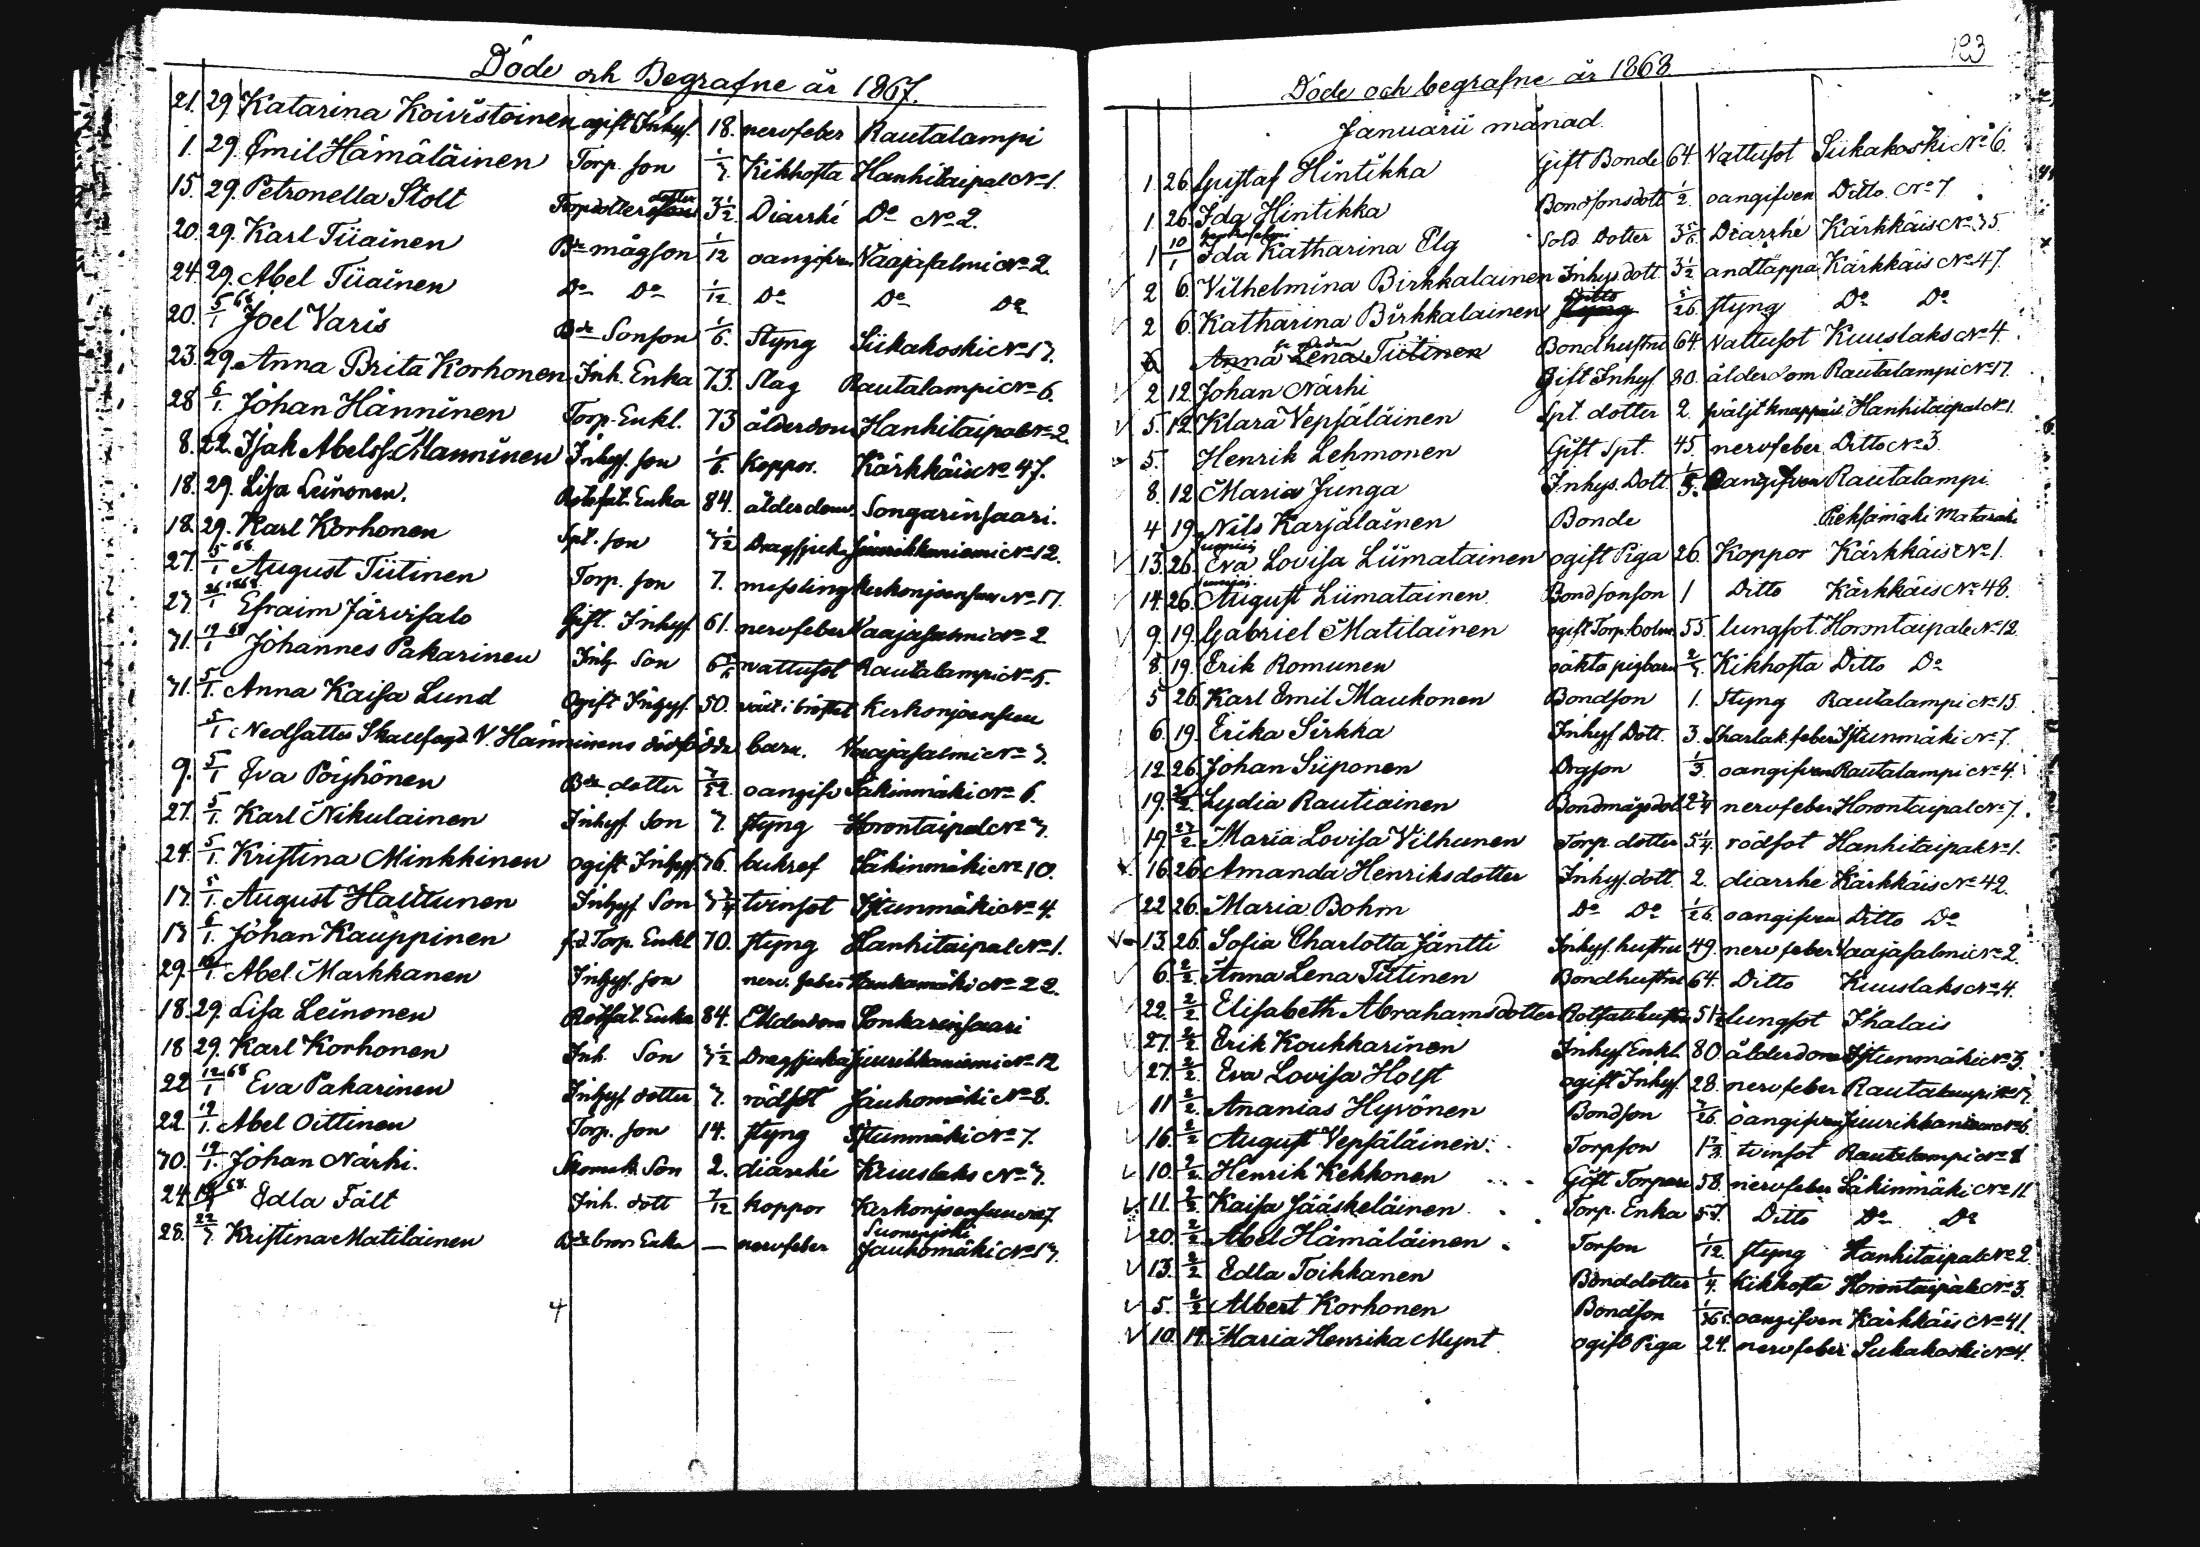 Döde och Begrafne år 1867.
21. 29. Katarina Koivistoinen ogift Inhys. 18. nervfeber Rautalampi
1. 29. Emil Hämäläinen Torp. son Kikhosta Hanhitaipal No 1.
15. 29. Petronella Stolt Torp dotter dotter 3 1/2 Diarrhé Do No 2.
20. 29. Karl Tiiainen Bde mågson 1/12 oangifven Vaajasalmi No 2.
24. 29. Abel Tiiainen Do Do 1/12 Do Do Do
20. 5/1 68 Joel Varis Bde Sonson 1/6. Styng Siikakoski No 17.
23. 29. Anna Brita Korhonen Inh. Enka 73. Slag Rautalampi No 6.
28 6/1. Johan Hänninen Torp. Enkl. 73 ålderdom Hanhitaipale No 2.
8. 22. Isak Abelss. Manninen Inhys. son 1/6. koppor. Kärkkäis No 47.
18. 29. Lisa Leinonen. Rotefat. Enka 84. ålderdom. Songarinsaari.
18. 29. Karl Korhonen Spt. son 1/2 Dragsjuk No 12.
27. 5/1 68 August Tiitinen Torp. son 7. messling Kerkonjoensuu No 17.
27. 26/1 1868. Efraim Järvisalo Gift. Inhys. 61. nervfeber Vaajasalmi No 2
31. 12/1 68 Johannes Pakarinen Inh. Son 6 5/6 vattusot Rautalampi No 5.
31. 5/1. Anna Kaisa Lund Ogift Inhys. 50. värk i bröstet Kerkonjoensuu
5/1 Nedsatter V. Hänninens dödfödda barn. Vaajasalmi No 3.
9. 5/1 Eva Pöyhönen Bde dotter oangifv Säkinmäki No 6.
27. 5/1. Karl Nikulainen Inhys. Son 7. styng Horontaipal No 3.
24. 5/1. Kristina Minkkinen ogift Inhys. 76. bukref Säkinmäki No 10.
17. 5/1. August Halttunen Inhys. Son tvinsot Istunmäki No 4.
17 6/1. Johan Kauppinen f.d. Torp. Enkl 70. styng Hanhitaipal No 1.
29. Abel Markkanen Inhys. son nerv. feber Haukamäki No 22.
18. 29. Lisa Leinonen Rotfat. Enka 84. Ålderdom Sonkarinsaari
18 29. Karl Korhonen Inh. Son 1/2 Dragsjuka Jiuurikkaniemi No 12
22 12/1 68 Eva Pakarinen Inhys dotter 7. rödsot Jauhomäki No 8.
22. 19/1. Abel Oittinen Torp. son 14. styng Istunmäki No 7.
30. 19/1. Johan Närhi. Skomak. Son 2. diarrhé Kuuslaks No 3.
24. 68. Edla Fält Inh. dott koppor Kerkonjoensuu No 7.
28. Kristina Matilainen Bde brors Enka — nervfeber Suonenjoki Jauhomäki No 17.
4
123
Döde och begrafne år 1868
Januarii månad.
1. 26. Gustaf Hintikka Gift Bonde 64. Vattusot Siikakoski No 6.
1. 26. Ida Hintikka Bondsonsdott 1/2. oangifven Ditto. No 7
1 10/1 Ida Katharina Elg Sold. Dotter 3 5/6. Diarrhé Kärkkäis No 35.
2 6. Vilhelmina Birkkalainen Inhys dott 3 1/2 andtäppa Kärkkäis No 47.
2 6. Katharina Birkkalainen Ditto 5/26. styng Do Do
6. Anna Lena Tiitinen Bondhustru 64. Vattusot Kuuslaks No 4.
2 12. Johan Närhi Gift Inhys 80. ålderdom Rautalampi No 17.
5. 12. Klara Vepsäläinen Spt. dotter 2. Hanhitaipal No 1.
5. Henrik Lehmonen Gift Spt. 45. nervfeber Ditto No 3.
8. 12 Maria Junga Inhys. Dott. oangifven Rautalampi.
4 19. Nils Karjalainen Bonde Pieksämäki
13. 26. Eva Lovisa Liimatainen ogift Piga 26. Koppor Kärkkäis No 1.
14. 26. August Liimatainen Bondsonson 1 Ditto Kärkkäis No 48.
9. 19. Gabriel Matilainen ogift Torp. 55. lungsot Horontaipale No 12.
8. 19. Erik Romunen oäkta pigbarn Kikhosta Ditto Do
5 26. Karl Emil Maukonen Bondson 1. Styng Rautalampi No 15.
6. 19. Erika Sirkka Inhys Dott. 3. Skarlak. feber Istunmäki No 7.
12. 26. Johan Siiponen Drgson 1/3. oangifven Rautalampi No 4.
19. 2/2. Lydia Rautiainen Bondmågsdot nervfeber Horontaipal No 7.
19. Maria Lovisa Vilhunen Torp. dotter 5 1/4. rödsot Hanhitaipale No 1.
16. 26. Amanda Henriksdotter Inhys. dott. 2. diarrhe Kärkkäis No 42.
22 26. Maria Bohm Do Do 1/26. oangifven Ditto Do
13. 26. Sofia Charlotta Jäntti Inhys. hustru 49. nervfeber Vaajasalmi No 2.
6. 2/2. Anna Lena Tiitinen Bondhustru 64. Ditto Kuuslaks No 4.
22. 2/2. Elisabeth Abrahamsdotter Rotfatihustru 51 1/2 lungsot Ihalais
27. 2/2. Erik Koukkarinen Inhys Enkl. 80. ålderdom Istunmäki No 3.
27. 2/2. Eva Lovisa Holst ogift Inhys 28. nervfeber Rautalampi No 17.
11 2/2. Ananias Hyvönen Bondson oangifven Jiuurikkaniemi No 6.
16. 2/2. August Vepsäläinen. Torpson tvinsot Rautalampi No 8
10. 2/2. Henrik Kekkonen Gift Torpare 58. nervfeber Säkinmäki No 11.
11. 2/2. Kaisa Jääskeläinen Torp. Enka 57. Ditto Do Do
20. 2/2. Abel Hämäläinen Torson 1/12. styng Hanhitaipale No 2.
13. 2/2 Edla Toikkanen Bonddotter 1/4. kikhosta Horontaipale No 3.
5. 2/2 Albert Korhonen Bondson 1/365. oangifven Kärkkäis No 41.
10. 19. Maria Henrika Mynt ogift Piga 24. nervfeber Siikakoski No 4.